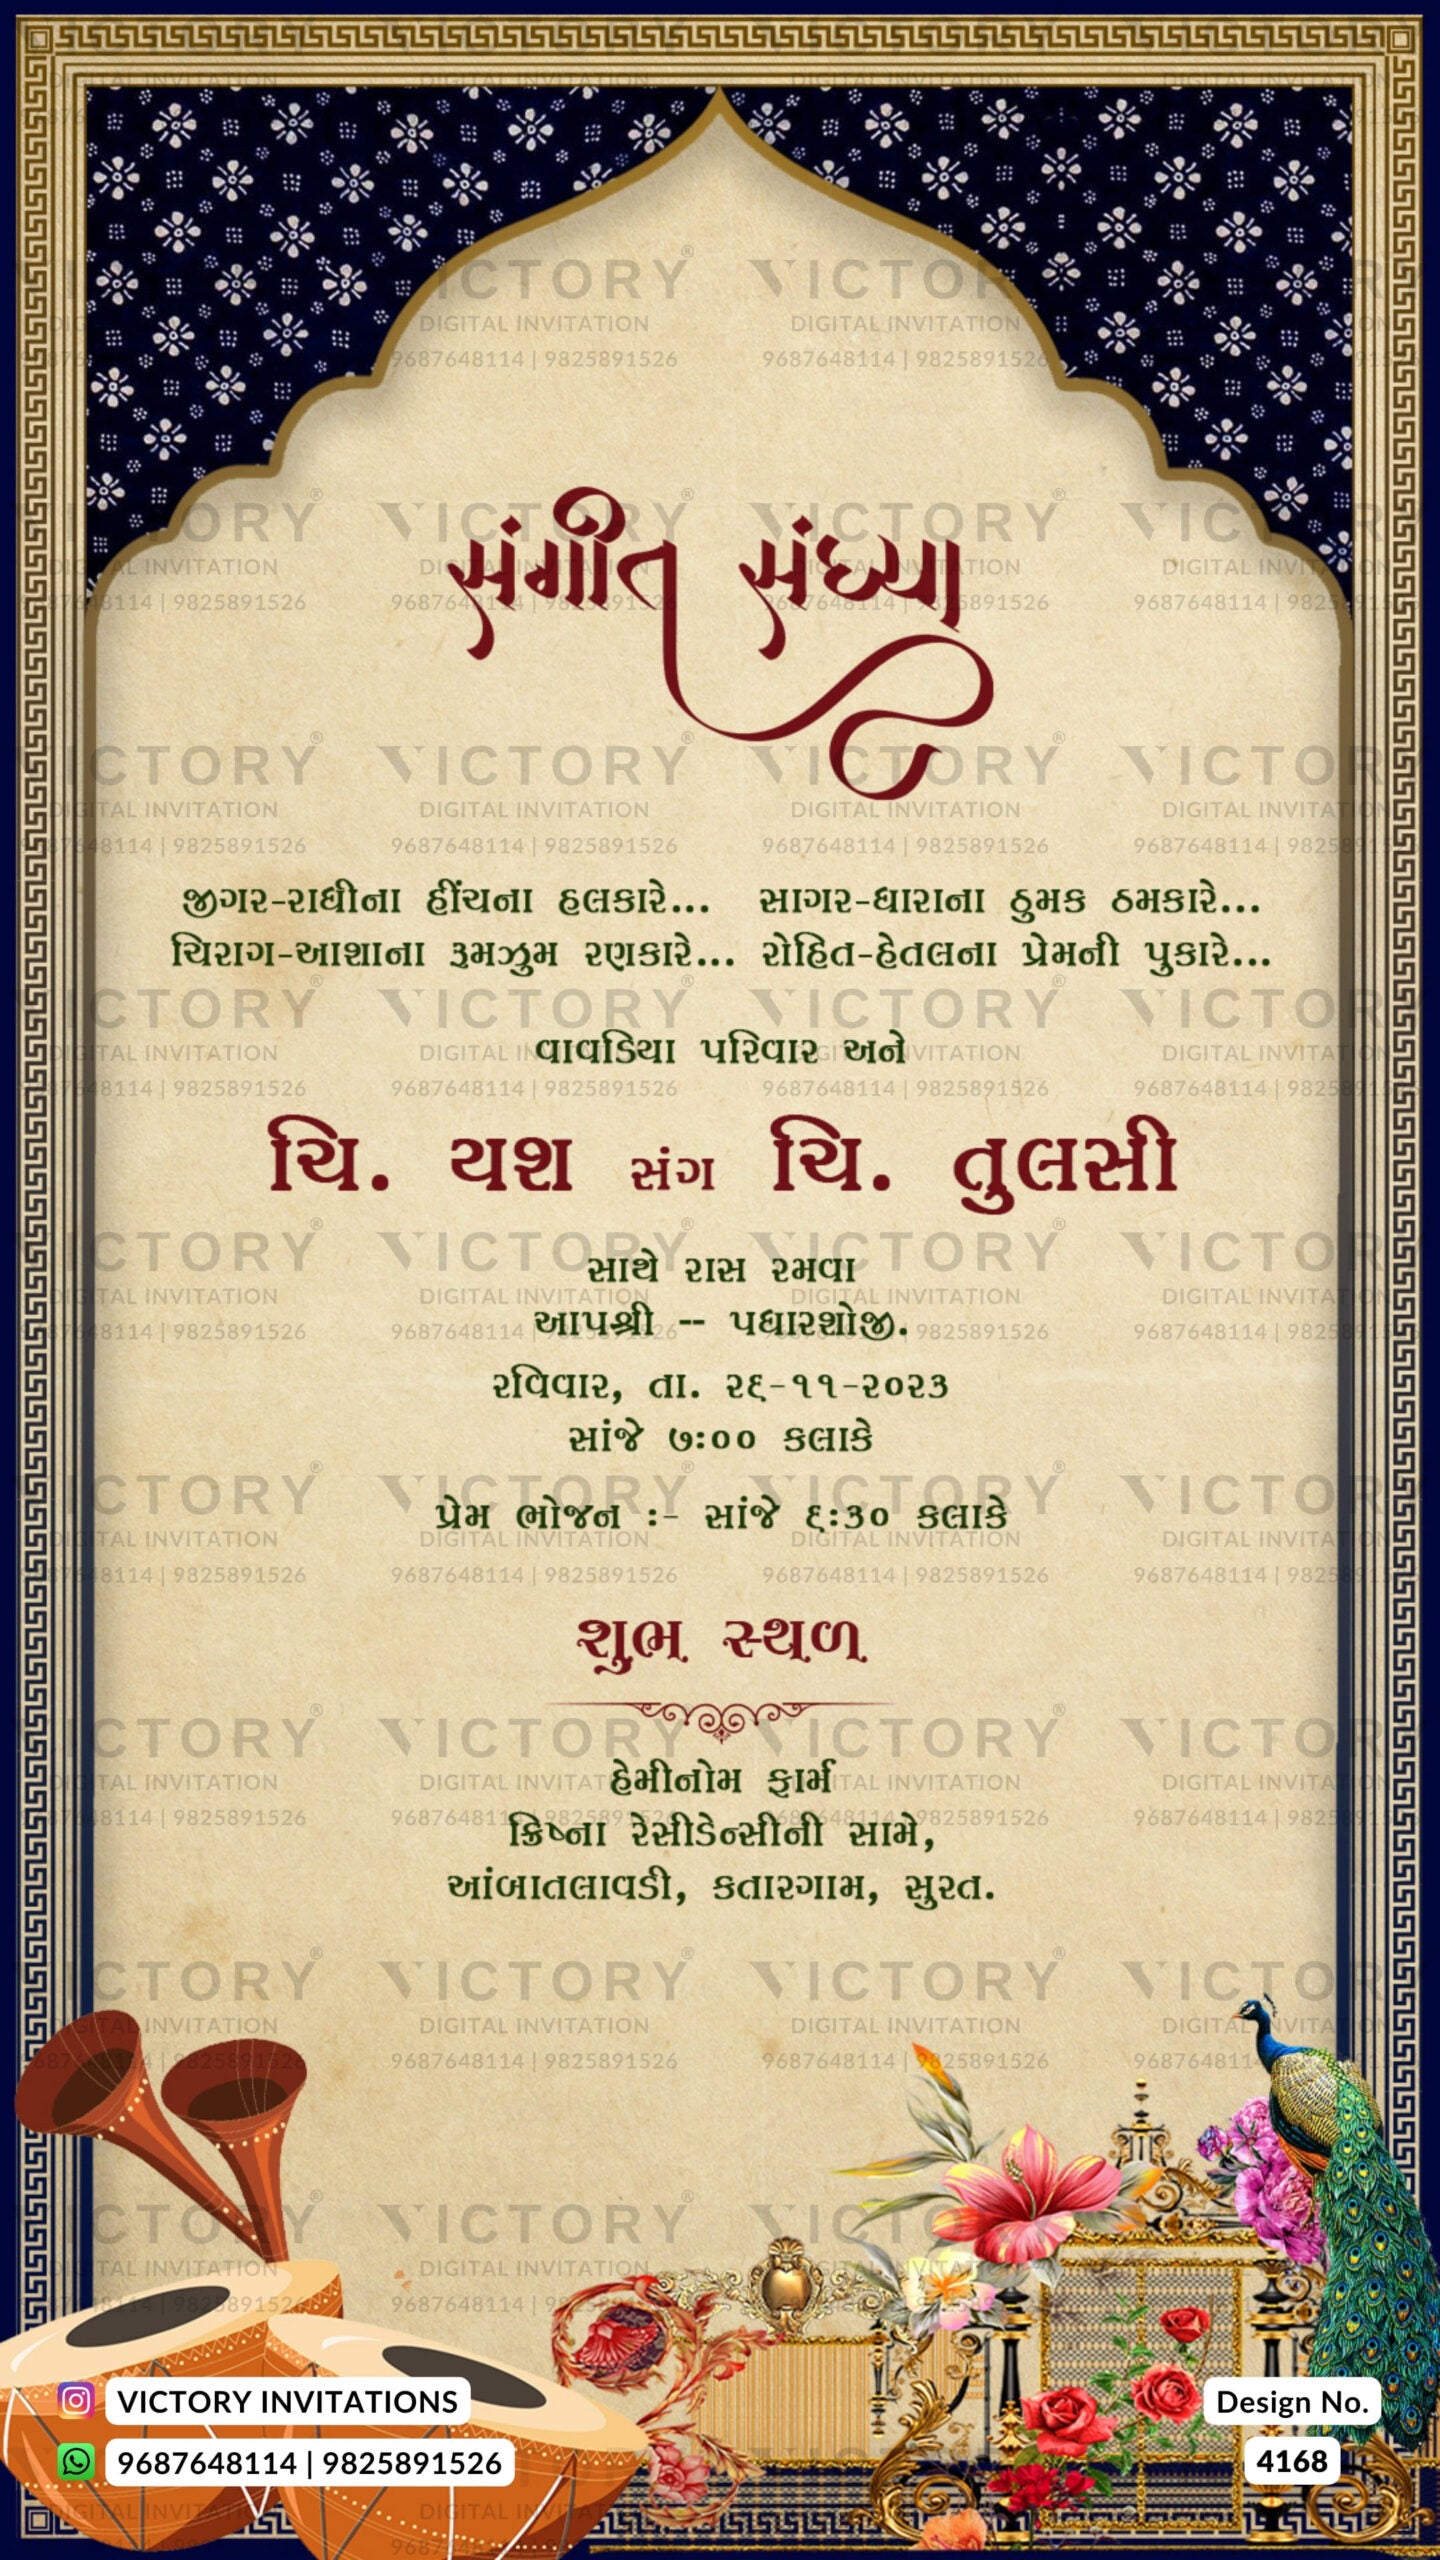 સંગીત સંધ્યા
જીગર-રાધીના હીંચના હલકારે... સાગર-ધારાના ઠુમક ઠમકારે...
ચિરાગ-આશાના રૂમઝુમ રણકારે... રોહિત-હેતલના પ્રેમની પુકારે...
વાવડિયા પરિવાર અને
ચિ. યશ સંગ ચિ. તુલસી
સાથે રાસ રમવા
આપશ્રી -- પધારશોજી.
રવિવાર, તા. ૨૬-૧૧-૨૦૨૩
સાંજે ૭:૦૦ કલાકે
પ્રેમ ભોજન :- સાંજે ૬:૩૦ કલાકે
શુભ સ્થળ
હેમીનોમ ફાર્મ
ક્રિષ્ના રેસીડેન્સીની સામે,
આંબાતલાવડી, કતારગામ, સુરત.
VICTORY INVITATIONS
9687648114 | 9825891526
Design No.
4168
VICTORY®
DIGITAL INVITATION
9687648114 | 9825891526